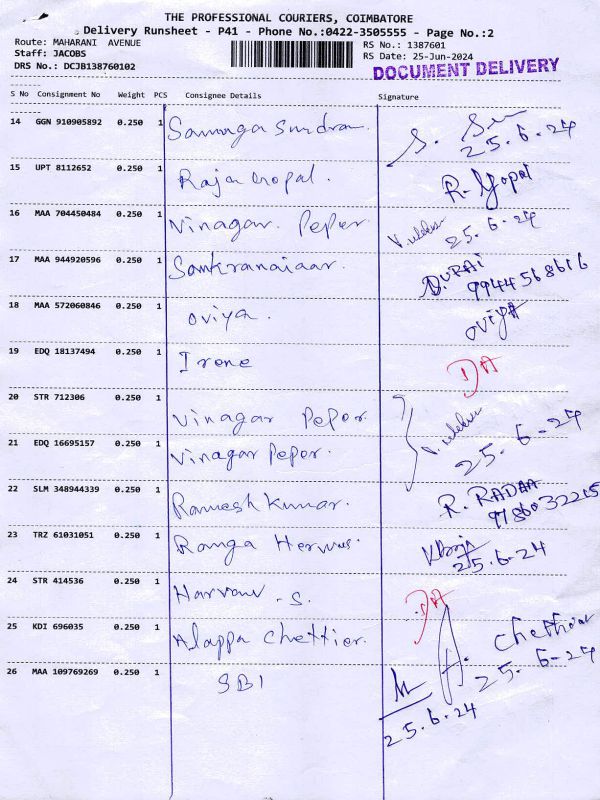 THE PROFESSIONAL COURIERS, COIMBATORE
Delivery Runsheet - P41 - Phone No.:0422-3505555 - Page No.:2
Route: MAHARANI AVENUE
Staff: JACOBS
DRS No.: DCJB138760102
RS No.: 1387601
RS Date: 25-Jun-2024
DOCUMENT DELIVERY
S No Consignment No Weight PCS Consignee Details Signature
14 GGN 910905892 0.250 1
25.6.24
15 UPT 8112652 0.250 1 Raja Gopal. R. Gopal
16 MAA 704450484 0.250 1 Vinagar Peper
25.6.24
17 MAA 944920596 0.250 1 Sankranaiaar. DURAI
9944568616
18 MAA 572060846 0.250 1 oviya. OVIYA
19 EDQ 18137494 0.250 1 Irene DA
20 STR 712306 0.250 1 Vinagar Peper
21 EDQ 16695157 0.250 1 Vinagar Peper. 25.6.24
22 SLM 348944339 0.250 1 Ramesh Kumar. R. RADAA
23 TRZ 61031051 0.250 1 Ranga
25.6.24
24 STR 414536 0.250 1 S. DA
25 KDI 696035 0.250 1 Alappa Chettier. A. Chettiar
25.6.24
26 MAA 109769269 0.250 1 SBI
25.6.24